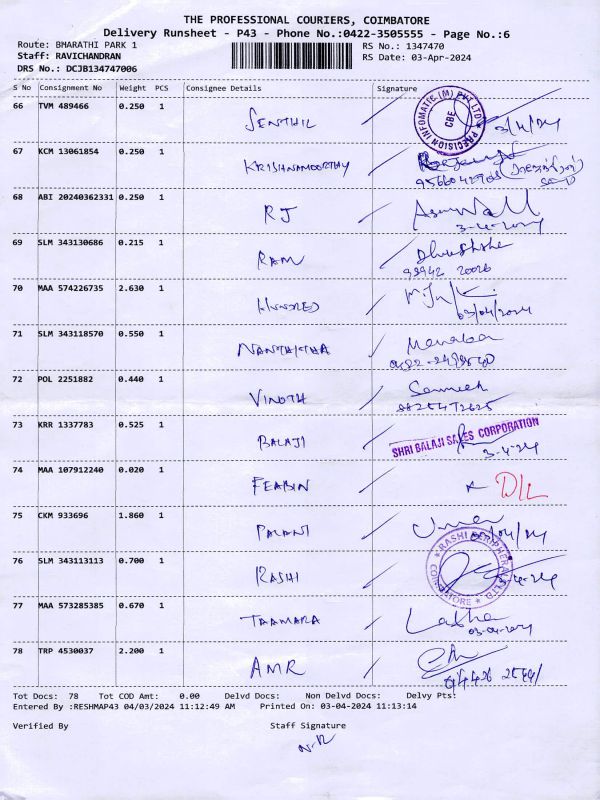 THE PROFESSIONAL COURIERS, COIMBATORE
Delivery Runsheet - P43 - Phone No.:0422-3505555 - Page No.:6
Route: BHARATHI PARK 1 RS No.: 1347470
Staff: RAVICHANDRAN RS Date: 03-Apr-2024
DRS No.: DCJB134747006
S No Consignment No Weight PCS Consignee Details Signature
66 TVM 489466 0.250 1
SENTHIL PRECISION INFOMATIC (M) PVT LTD CBE 3/4/24
67 KCM 13061854 0.250 1
KRISHNAMOORTHY
68 ABI 20240362331 0.250 1
RJ
3-4-2024
69 SLM 343130686 0.215 1
RAM
98942 20026
70 MAA 574226735 2.630 1
HUNDRED
03/04/2024
71 SLM 343118570 0.550 1
NANTHITHA
72 POL 2251882 0.440 1
VINOTH
8825472625
73 KRR 1337783 0.525 1
BALAJI SHRI BALAJI SALES CORPORATION
3-4-24
74 MAA 107912240 0.020 1
FEABIN D/L
75 CKM 933696 1.860 1
PALANI
76 SLM 343113113 0.700 1
RASHI RASHI PERIPHERALS LTD COIMBATORE
3-4-24
77 MAA 573285385 0.670 1
TAAMARA
03-04-2024
78 TRP 4530037 2.200 1
AMR
Tot Docs: 78 Tot COD Amt: 0.00 Delvd Docs: Non Delvd Docs: Delvy Pts:
Entered By :RESHMAP43 04/03/2024 11:12:49 AM Printed On: 03-04-2024 11:13:14
Verified By Staff Signature
N.R